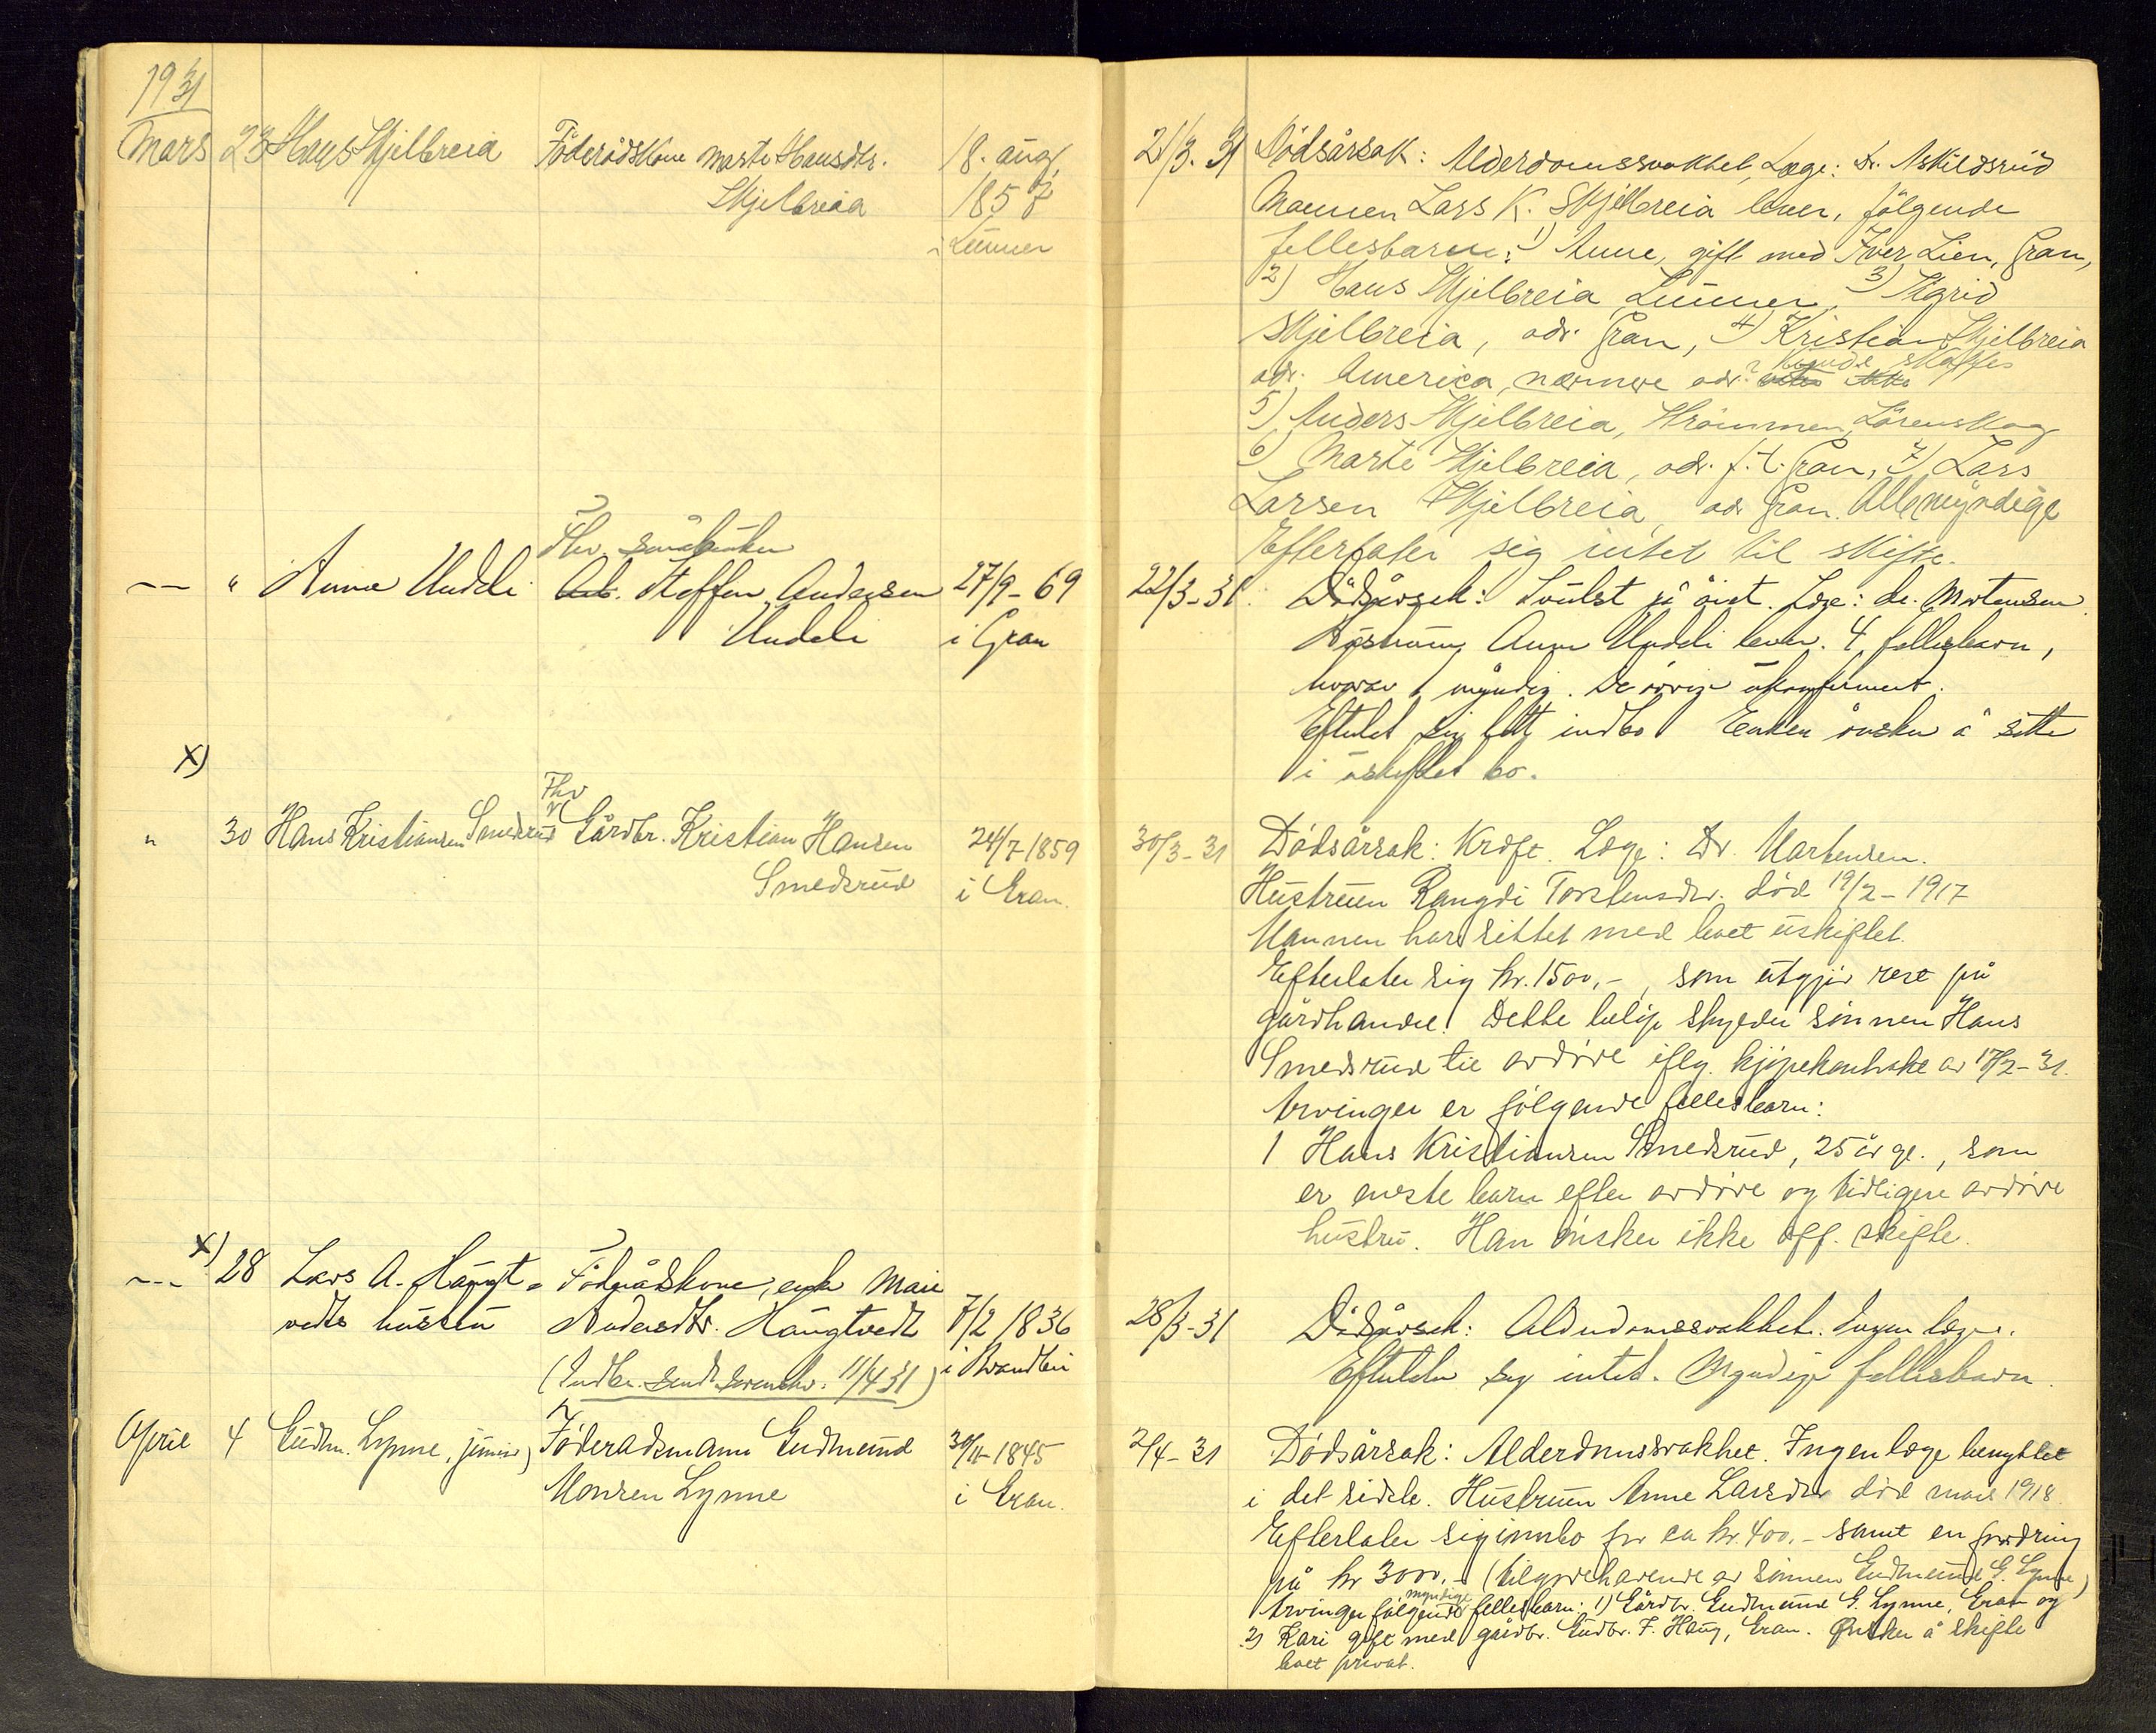 1931
Mars 23 Hans Skjelbreia Föderådskone Marte Hansdtr. 18. aug. 21/3. 31 Dödsårsak: Alderdomssvakhet, Læge: Dr. Askildsrud
Skjelbreia 1857 Mannen Lars K. Skjelbreia lever, følgende
i Lunner fellesbarn: 1) Anne, gift med Iver Lien, Gran,
2) Hans Skjelbreia Lunner, 3) Sigrid
Skjelbreia, adr. Gran, 4) Kristian Skjelbreia
adr. America, nærmere adr. kunde skaffes
5) Anders Skjelbreia, Strömmen, Lörenskog
6) Marte Skjelbreia, adr. f.t. Gran, 7) Lars
Larsen Skjelbreia, adr Gran. Alle myndige
Efterlater sig intet til skifte.
Fhv. småbruker
— " Anna Undeli Arb. Steffen Andersen 27/9-69 22/3-31 Dödsårsak: Svulst på . Læge: dr. Mortensen
Undeli i Gran Hustrun Anna Undeli lever. 4 fellesbarn,
hvorav 1 myndig. De övrige ukonfirmert.
Efterlot sig litt indbo Enken önsker å sitte
i uskiftet bo.
X)
Fhv
" 30 Hans Kristiansen Smedsrud Gårdbr. Kristian Hansen 24/7 1859 30/3-31 Dödsårsak: Kræft. Læge: Dr. Martensen.
Smedsrud i Gran. Hustruen Rangdi Torstensdtr. død 19/2-1917
Mannen har sittet med boet uskiftet.
Efterlater sig kr. 1500,-, som utgjør rest på
gårdhandel. Dette beløp skylder sønnen Hans
Smedsrud til avdøde iflg. kjøpekontrakt av 17/2-31.
Arvinger er følgende fellesbarn:
1 Hans Kristiansen Smedsrud, 25 år gl., som
er eneste barn efter avdøde og tidligere avdøde
hustru. Han ønsker ikke off. skifte.
X)
— 28 Lars A. Haugt- Föderådskone, enke Mari
vedts hustru Andersdtr. Haugtvedt 7/2 1836 28/3-31 Dödsårsak: Alderdomssvakhet. Ingen læge.
(Indber. sendt sorenskr. 11/4 31) i Brandbu Efterlater sig intet. Myndige fellesbarn.
April 4 Gudm. Lynne, junior, Föderadsmann Gudmund 30/11-1845 2/4-31 Dödsårsak: Alderdomssvakhet. Ingen læge benyttet
Monsen Lynne i Gran. i det sidste. Hustruen Anne Larsdtr død mars 1918.
Efterlater sig innbo for ca kr. 400.- samt en fordring
på kr 3000,- (tilgodehavende av sønnen Gudmund G. Lynne)
myndige
Arvinger følgende fellesbarn: 1) Gårdbr. Gudmund G. Lynne, Gran og
2) Kari gift med gårdbr. Gudbr. F. Haug, Gran. Ønsker å skifte
boet privat.